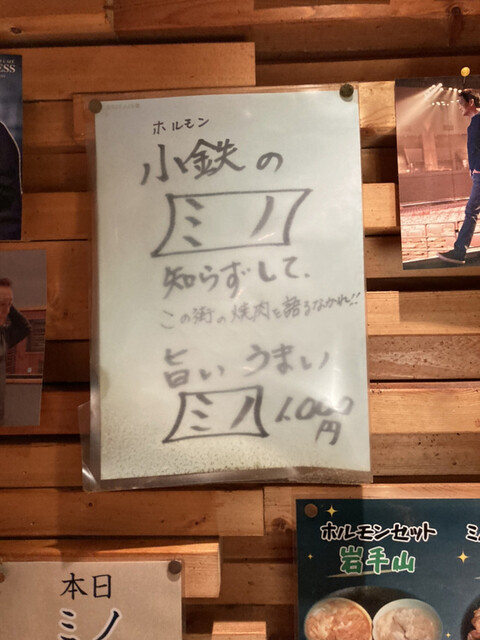 ESS
ホルモン
小鉄の
ミノ
知らずして、
この街の焼肉を語るなかれ!!
旨い うまい
ミノ 1,000
円
ホルモンセット
岩手山
ミ
本日
ミノ